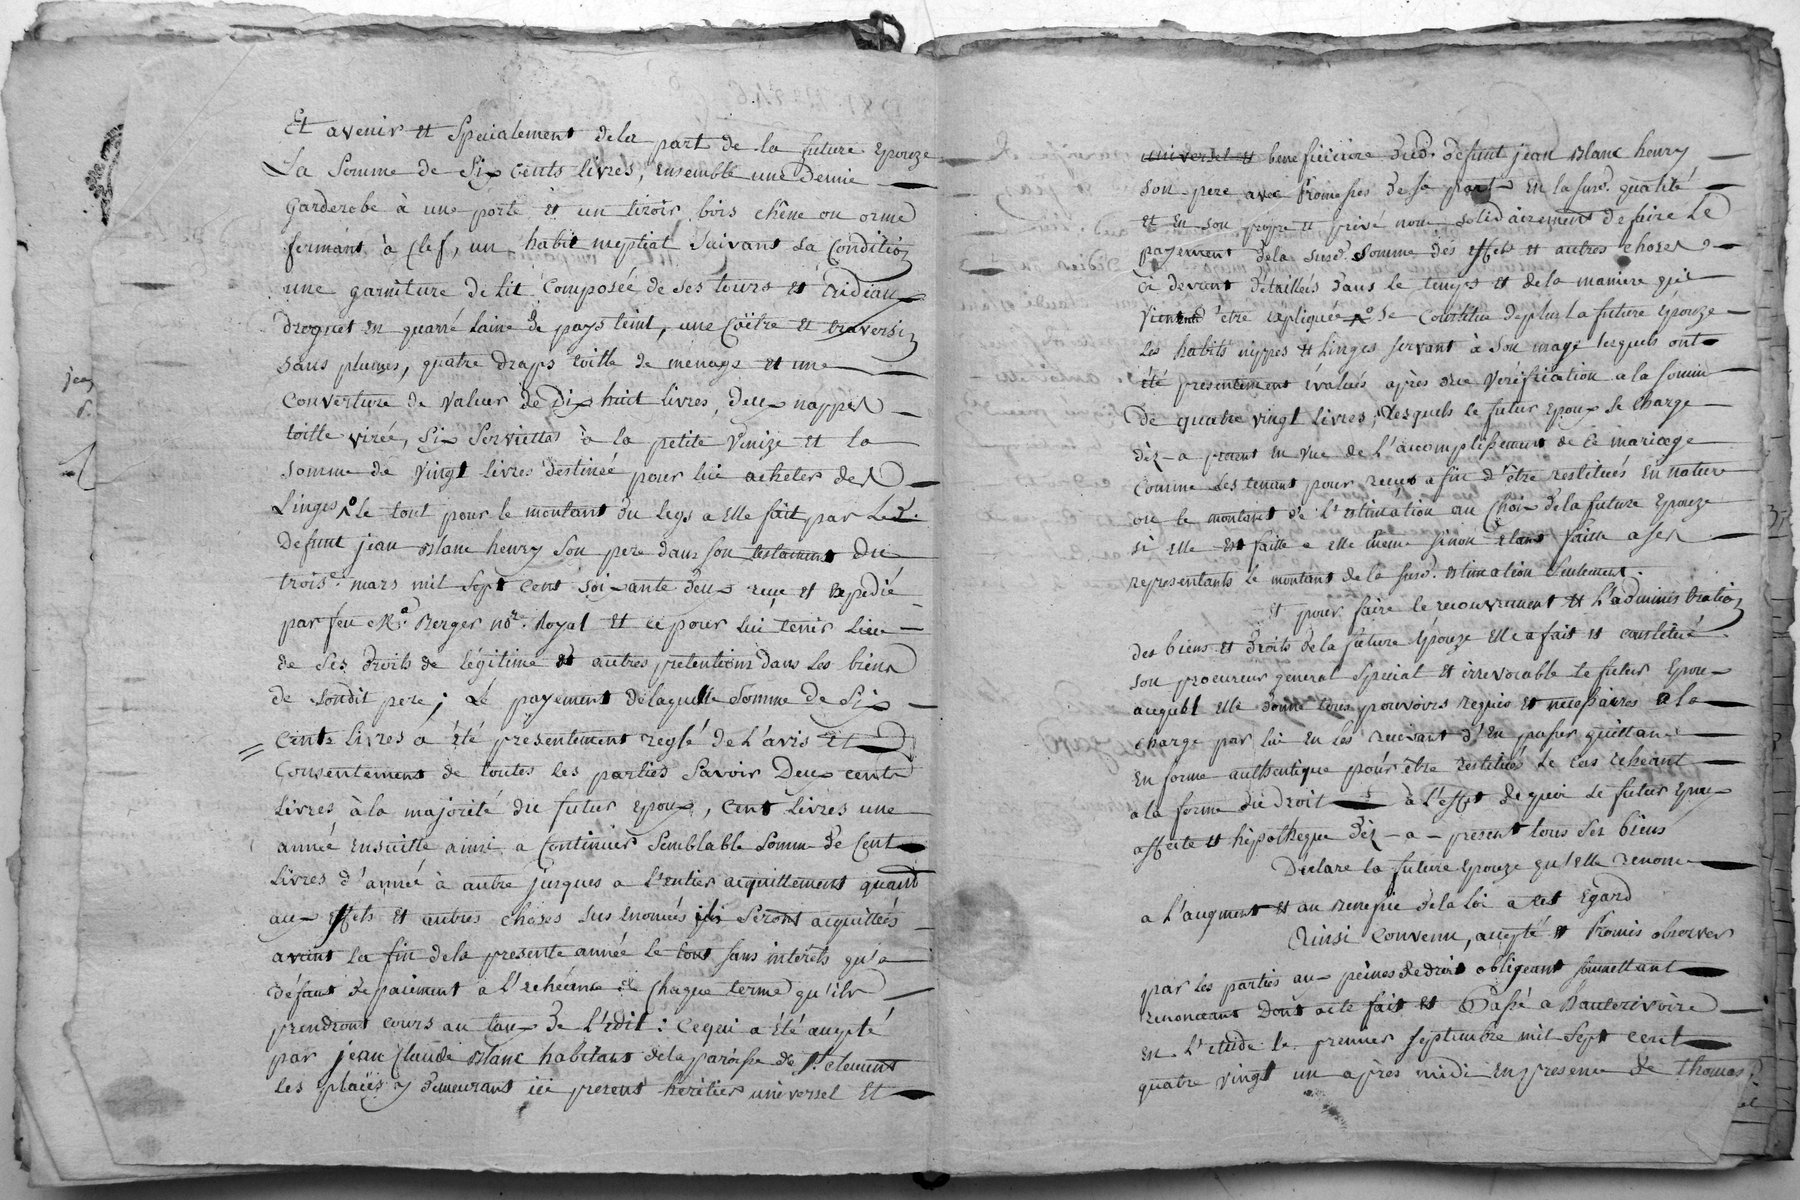 Et avenir et Specialement dela part de la future Epouze
La Somme de Six Cents livres, Ensemble une Demie
Garderobe à une porte et un tiroir bois chêne ou orme
fermant à Clef, un habit nuptial Suivant Sa Condition
une garniture de Lit Composée de Ses tours et Ridiaux
droguet en quarré Laine de pays teint, une Coëtre et traversin
Sans plumes, quatre draps toille de menage et une
Couverture de valeur de Dix huit livres, Deux nappes
toille virée, Six Serviettes à la petite Venize et la
Somme de Vingt livres destinée pour lui acheter des
Linges le tout pour le montant du legs a Elle fait par Led.
Defunt jean Blanc henry Son pere dans Son testament du
trois mars mil Sept Cent Soixante deux reçu et expedié
par feu Me. Berger nore. Royal et ce pour lui tenir Lieu
de Ses droits de légitime et autres pretentions dans Les biens
de Sondit pere; Le payement delaquelle Somme de Six
Cents livres a été présentement reglé de L'avis Et
Consentement de toutes les parties Savoir Deux cents
Livres à la majorité du futur epoux, Cent Livres une
année Ensuitte ainsi a Continuer Semblable Somme de Cent
Livres d'année à autre jusques a l'entier acquittement quant
aux effets et autres choses Sus enoncés ils Seront acquittés
avant la fin dela presente année le tout Sans interêts qu'a
défaut de paiement a l'echéance de Chaque terme qu'ils
prendront cours au taux de L'edit: Cequi a été accepté
par jean Claude Blanc habitant dela paroisse de St. Clement
les places y demeurant ici present heritier universel et
jean
universel et beneficiaire dud. defunt jean Blanc henry
Son pere avec Promesses de Sa part En la Susd. qualité
Et En Son propre et privé nom Solidairement de faire Le
payement dela Susd. Somme des effets et autres choses
Ci devant détaillés dans Le temps et dela maniere qu'il
Vient d'être expliquée Se Constitue deplus La future Epouze
Les habits nippes et Linges Servant à Son usage lesquels ont
été presentement évalués après due Verification a la Somme
De quatre vingt Livres, desquels Le futur Epoux Se Charge
dès-a present en vue de L'acomplissement de Ce mariage
Comme Les tenant pour reçus afin d'être restitués En nature
ou Le montant de L'estimation au Choix dela future Epouze
Si Elle est faitte a elle même Sinon étant faitte a Ses
representants Le montant de la Susd. estimation Seulement.
Et pour faire le recouvrement et L'administration
des biens et droits dela future Epouze Elle a fait et constitué
Son procureur general Special et irrevocable le futur Epoux
auquel Elle donne tous pouvoirs requis et necessaires a la
charge par lui En les recevant d'En passer quittance
En forme authentique pour être restitués Le Cas echeant
a la forme du droit à L'effet de quoi Le futur Epoux
affecte et hipotheque dès-a-present tous Ses biens
Declare la future Epouze qu'elle renonce
a L'augment et au Benefice dela Loi a cet Egard
Ainsi Convenu, accepté et Promis observer
par les parties aux peines de droit obligeant Soumettant
renonceant Dont acte fait et Passé a hauterivoire
En L'etude le premier Septembre mil Sept cent
quatre vingt un après midi En presence de Thomas